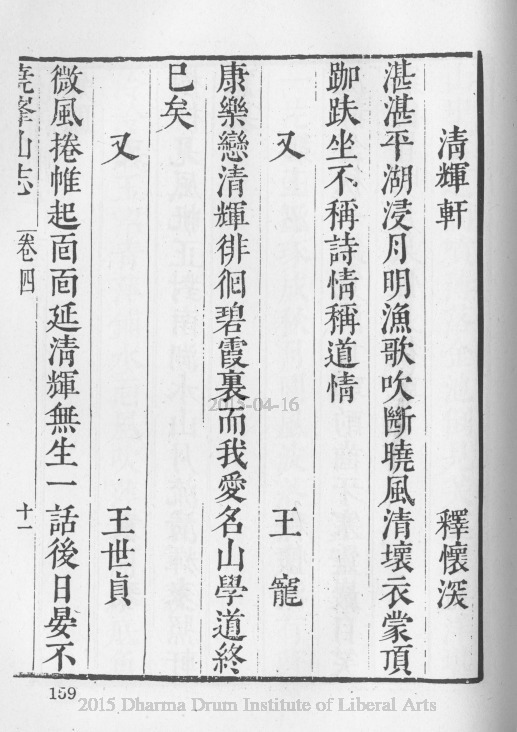 清輝軒　釋懷深
湛湛平湖浸月明漁歌吹斷曉風清壞衣蒙頂
跏趺坐不稱詩情稱道情
又　王寵
康樂戀清輝徘徊碧霞裏而我愛名山學道終
已矣
又　王世貞
微風捲帷起面面延清輝無生一話後日晏不
堯峯山志　卷四　十一
159
2015-04-16
2015 Dharma Drum Institute of Liberal Arts